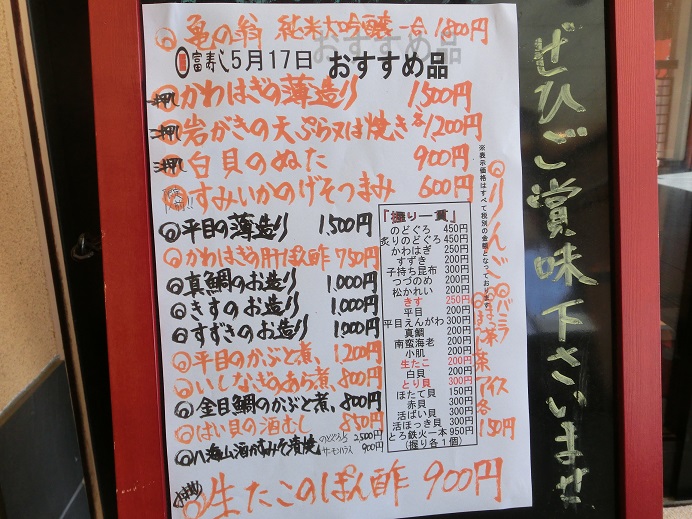 ◎亀の翁 純米大吟醸 一合 1800円
富寿し5月17日 おすすめ品
一押し ◎かわはぎの薄造り 1,500円
二押し ◎岩がきの天ぷら又は焼き 各1,200円
三押し ◎白貝のぬた 900円
◎すみいかのげそつまみ 600円
◎平目の薄造り 1,500円
◎かわはぎの肝ぽん酢 750円
◎真鯛のお造り 1,000円
◎きすのお造り 1,000円
◎すずきのお造り 1,000円
◎平目のかぶと煮 1,200円
◎いしなぎのあら煮 800円
◎金目鯛のかぶと煮 800円
◎ばい貝の酒むし 850円
◎八海山酒かすみそ漬焼 のどぐろ 2,500円
サーモンハラス 900円
◎生たこのぽん酢 900円
『握り一貫』
のどぐろ 450円
炙りのどぐろ 450円
かわはぎ 250円
すずき 200円
子持ち昆布 300円
つづのめ 200円
松かれい 200円
きす 250円
平目 200円
平目えんがわ 300円
真鯛 200円
南蛮海老 200円
小肌 200円
生たこ 200円
白貝 200円
とり貝 300円
ほたて貝 150円
赤貝 300円
活ばい貝 300円
活ほっき貝 300円
とろ鉄火一本 950円
(握り各1個)
※表示価格はすべて税別の金額となっております。
◎りんご
◎バニラ
◎ほうじ茶アイス 各150円
ぜひご賞味下さいませ